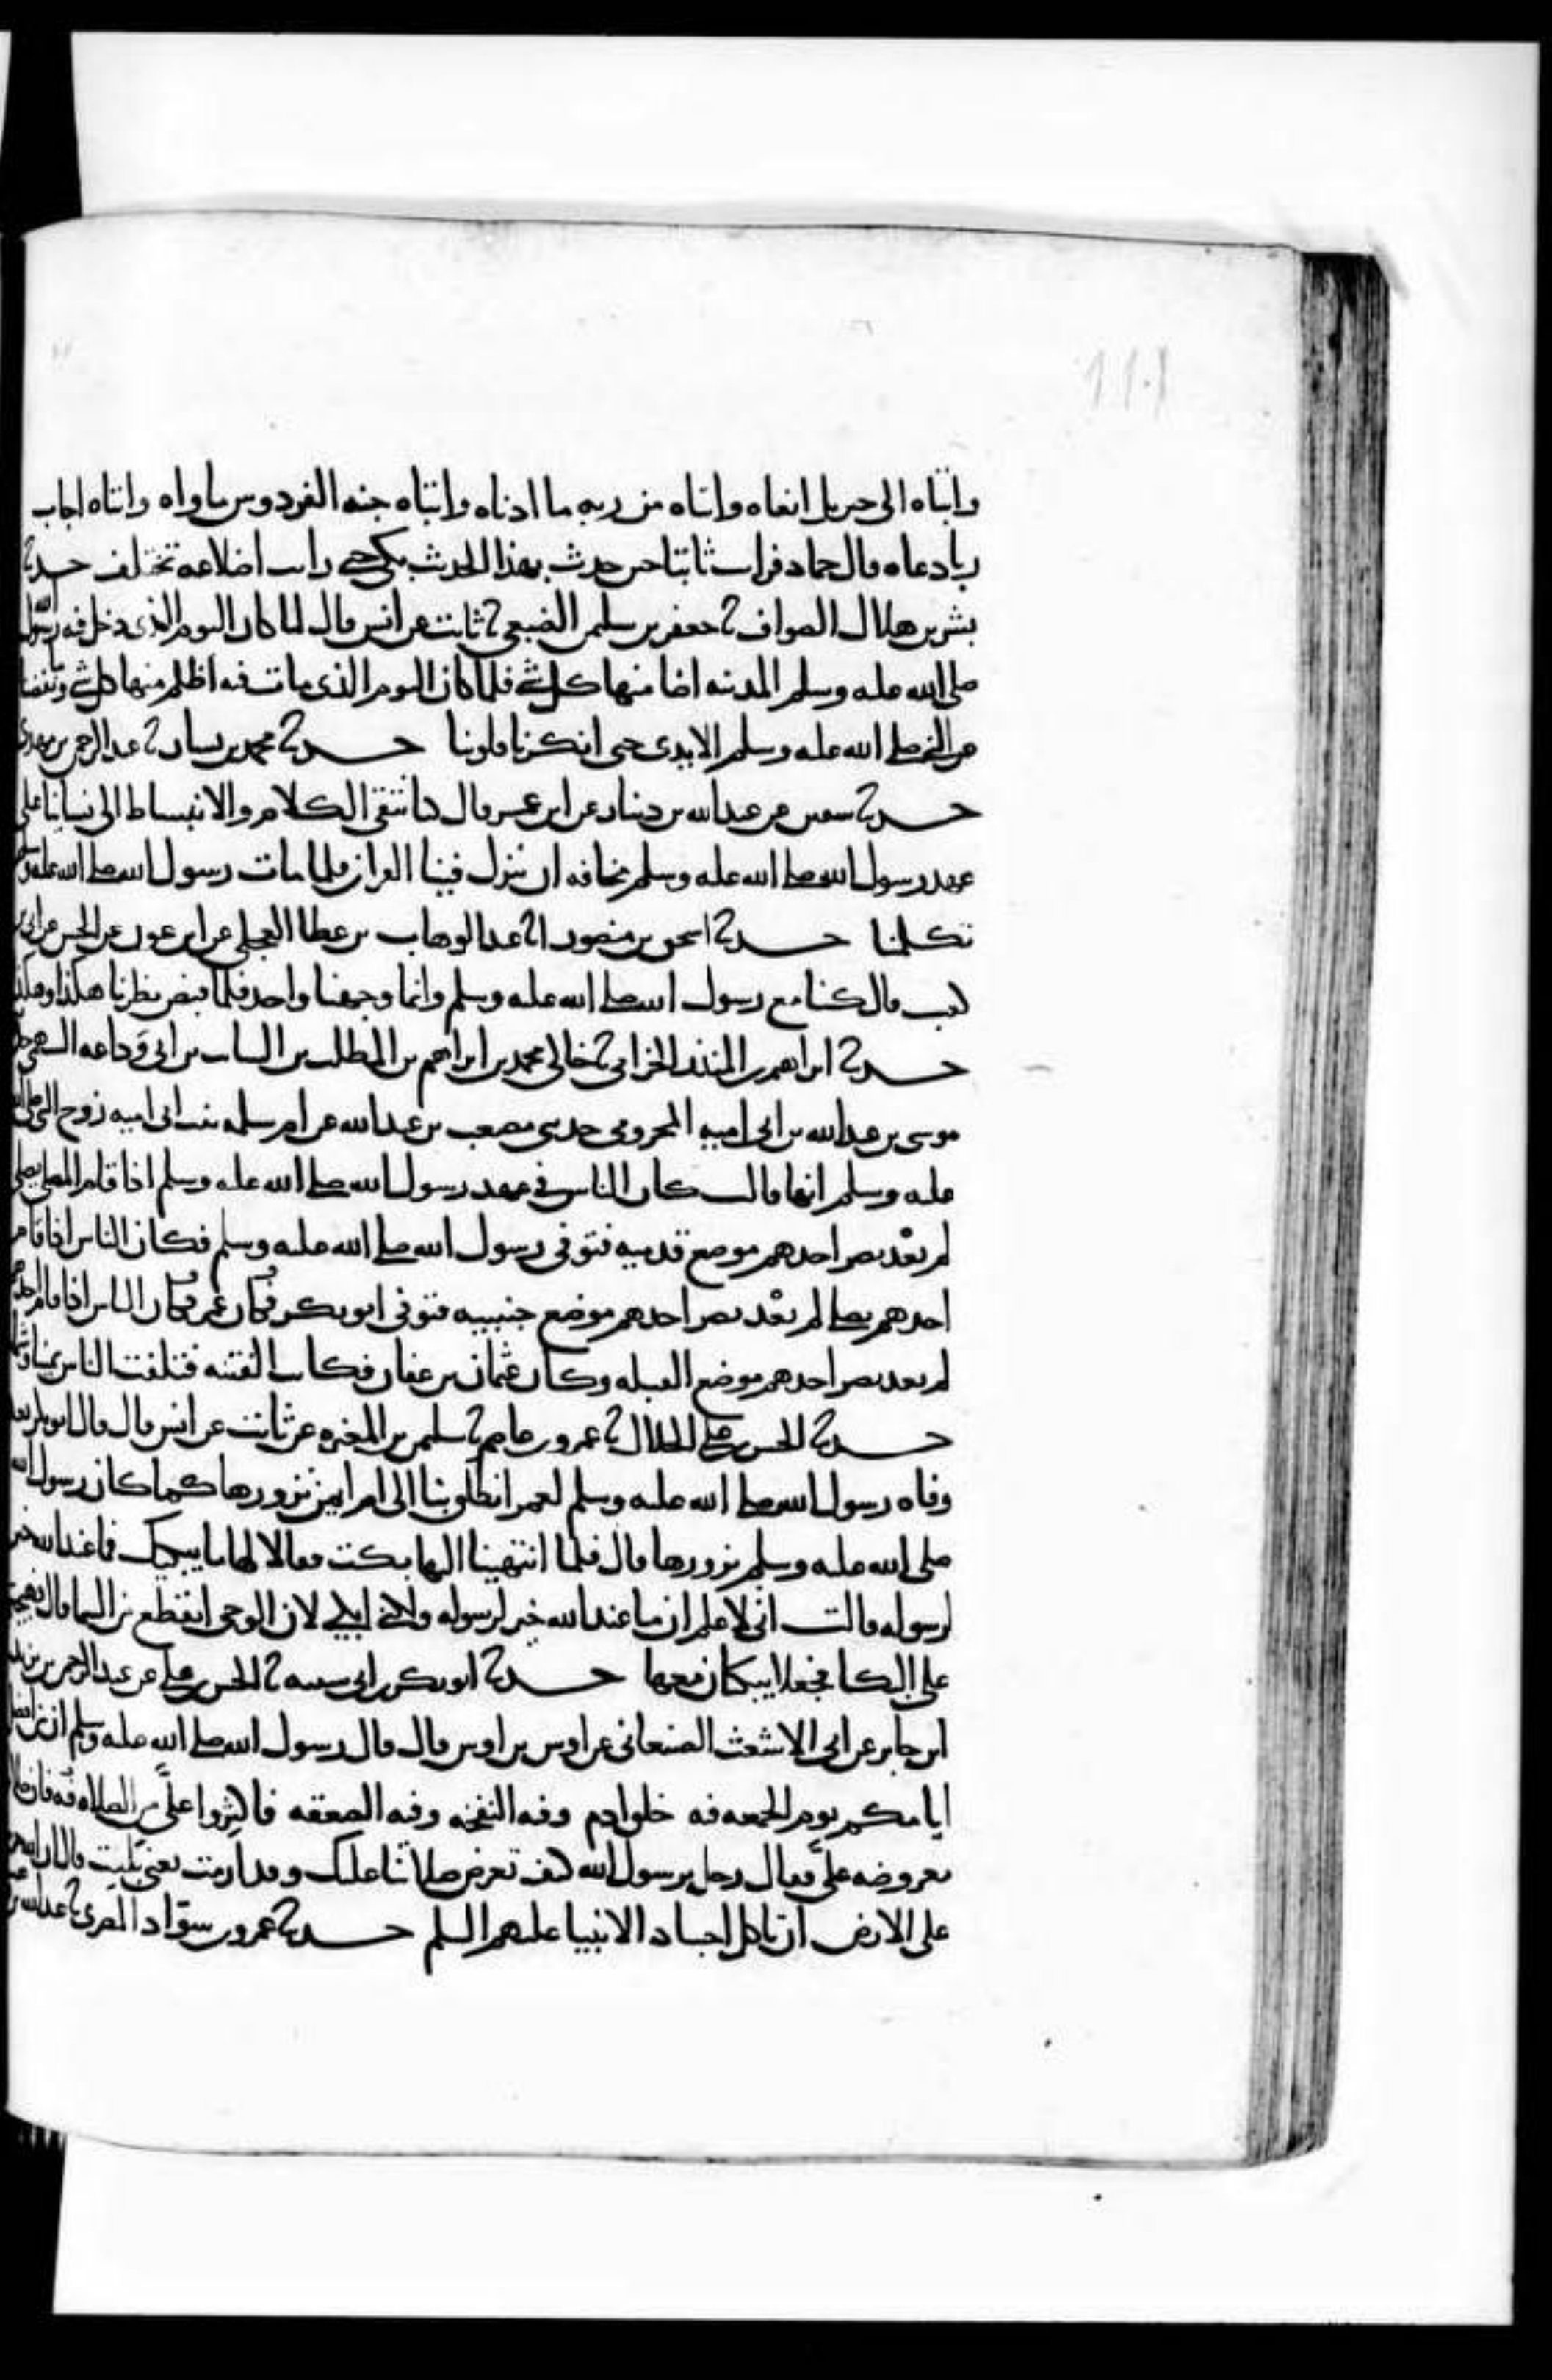 111
وابتاه الى جبريل انعاه وابتاه من ربه ما ادناه وابتاه جنه الفردوس ماواه وابتاه اجاب
ربا دعاه قال حماد فرايت ثابتا حين حدث بهذا الحديث بكى حتى رايت اضلاعه تختلف حدثنا
بشر بن هلال الصواف ثنا جعفر بن سليمن الضبعي ثنا ثابت عن انس قال لما كان اليوم الذي دخل فيه رسول الله
صلى الله عليه وسلم المدينه اضا منها كل شي فلما كان اليوم الذي مات فيه اظلم منها كل شي وما نفضنا
عن النبي صلى الله عليه وسلم الايدي حتى انكرنا قلوبنا حدثنا محمد بن بشار ثنا عبد الرحمن بن مهدي
حدثنا سفين عن عبد الله بن دينار عن ابن عمر قال كنا نتقي الكلام والانبساط الى نساينا على
عهد رسول الله صلى الله عليه وسلم مخافه ان ينزل فينا القران فلما مات رسول الله صلى الله عليه وسلم
تكلمنا حدثنا اسحق بن منصور انا عبد الوهاب بن عطا العجلي عن ابن عون عن الحسن عن ابي بن
كعب قال كنا مع رسول الله صلى الله عليه وسلم وانما وجهنا واحد فلما قبض نظرنا هكذا وهكذا
حدثنا ابراهيم بن المنذر الخزامي ثنا خالي محمد بن ابراهيم بن المطلب بن السايب بن ابي وداعه السهمي حدثني
موسى بن عبد الله بن ابي اميه المخزومي حدثني مصعب بن عبد الله عن ام سلمه بنت ابي اميه زوج النبي صلى الله
عليه وسلم انها قالت كان الناس في عهد رسول الله صلى الله عليه وسلم اذا قام المصلي يصلي
لم يعد بصر احدهم موضع قدميه فتوفي رسول الله صلى الله عليه وسلم فكان الناس اذا قام
احدهم يصلي لم يعد بصر احدهم موضع جنبيه فتوفي ابو بكر وكان عمر فكان الناس اذا قام احدهم
لم يعد بصر احدهم موضع القبله وكان عثمان بن عفان فكانت الفتنه فتلفت الناس يمينا وشمالا
حدثنا الحسن بن علي الخلال ثنا عمرو بن عاصم ثنا سليمن بن المغيره عن ثابت عن انس قال قال ابو بكر بعد
وفاه رسول الله صلى الله عليه وسلم لعمر انطلق بنا الى ام ايمن نزورها كما كان رسول الله
صلى الله عليه وسلم يزورها قال فلما انتهينا اليها بكت فقالا لها ما يبكيك فما عند الله خير
لرسوله قالت اني لاعلم ان ما عند الله خير لرسوله ولكني ابكي لان الوحي انقطع من السما قال فهيجتهما
على البكا فجعلا يبكيان معها حدثنا ابو بكر بن ابي شيبه ثنا الحسن بن علي عن عبد الرحمن بن يزيد
ابن جابر عن ابي الاشعث الصنعاني عن اوس بن اوس قال قال رسول الله صلى الله عليه وسلم ان من افضل
ايامكم يوم الجمعه فيه خلق ادم وفيه النفخه وفيه الصعقه فاكثروا علي من الصلاه فيه فان صلاتكم
معروضه علي فقال رجل يرسول الله كيف تعرض صلاتنا عليك وقد ارمت يعني بليت قال ان الله حرم
على الارض ان تاكل اجساد الانبيا عليهم السلم حدثنا عمرو بن سواد المصري ثنا عبد الله بن